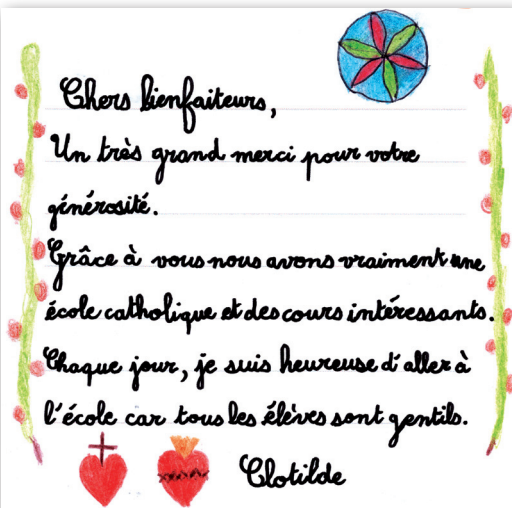 Chers bienfaiteurs,
Un très grand merci pour votre
générosité.
Grâce à vous nous avons vraiment une
école catholique et des cours intéressants.
Chaque jour, je suis heureuse d'aller à
l'école car tous les élèves sont gentils.
Clotilde